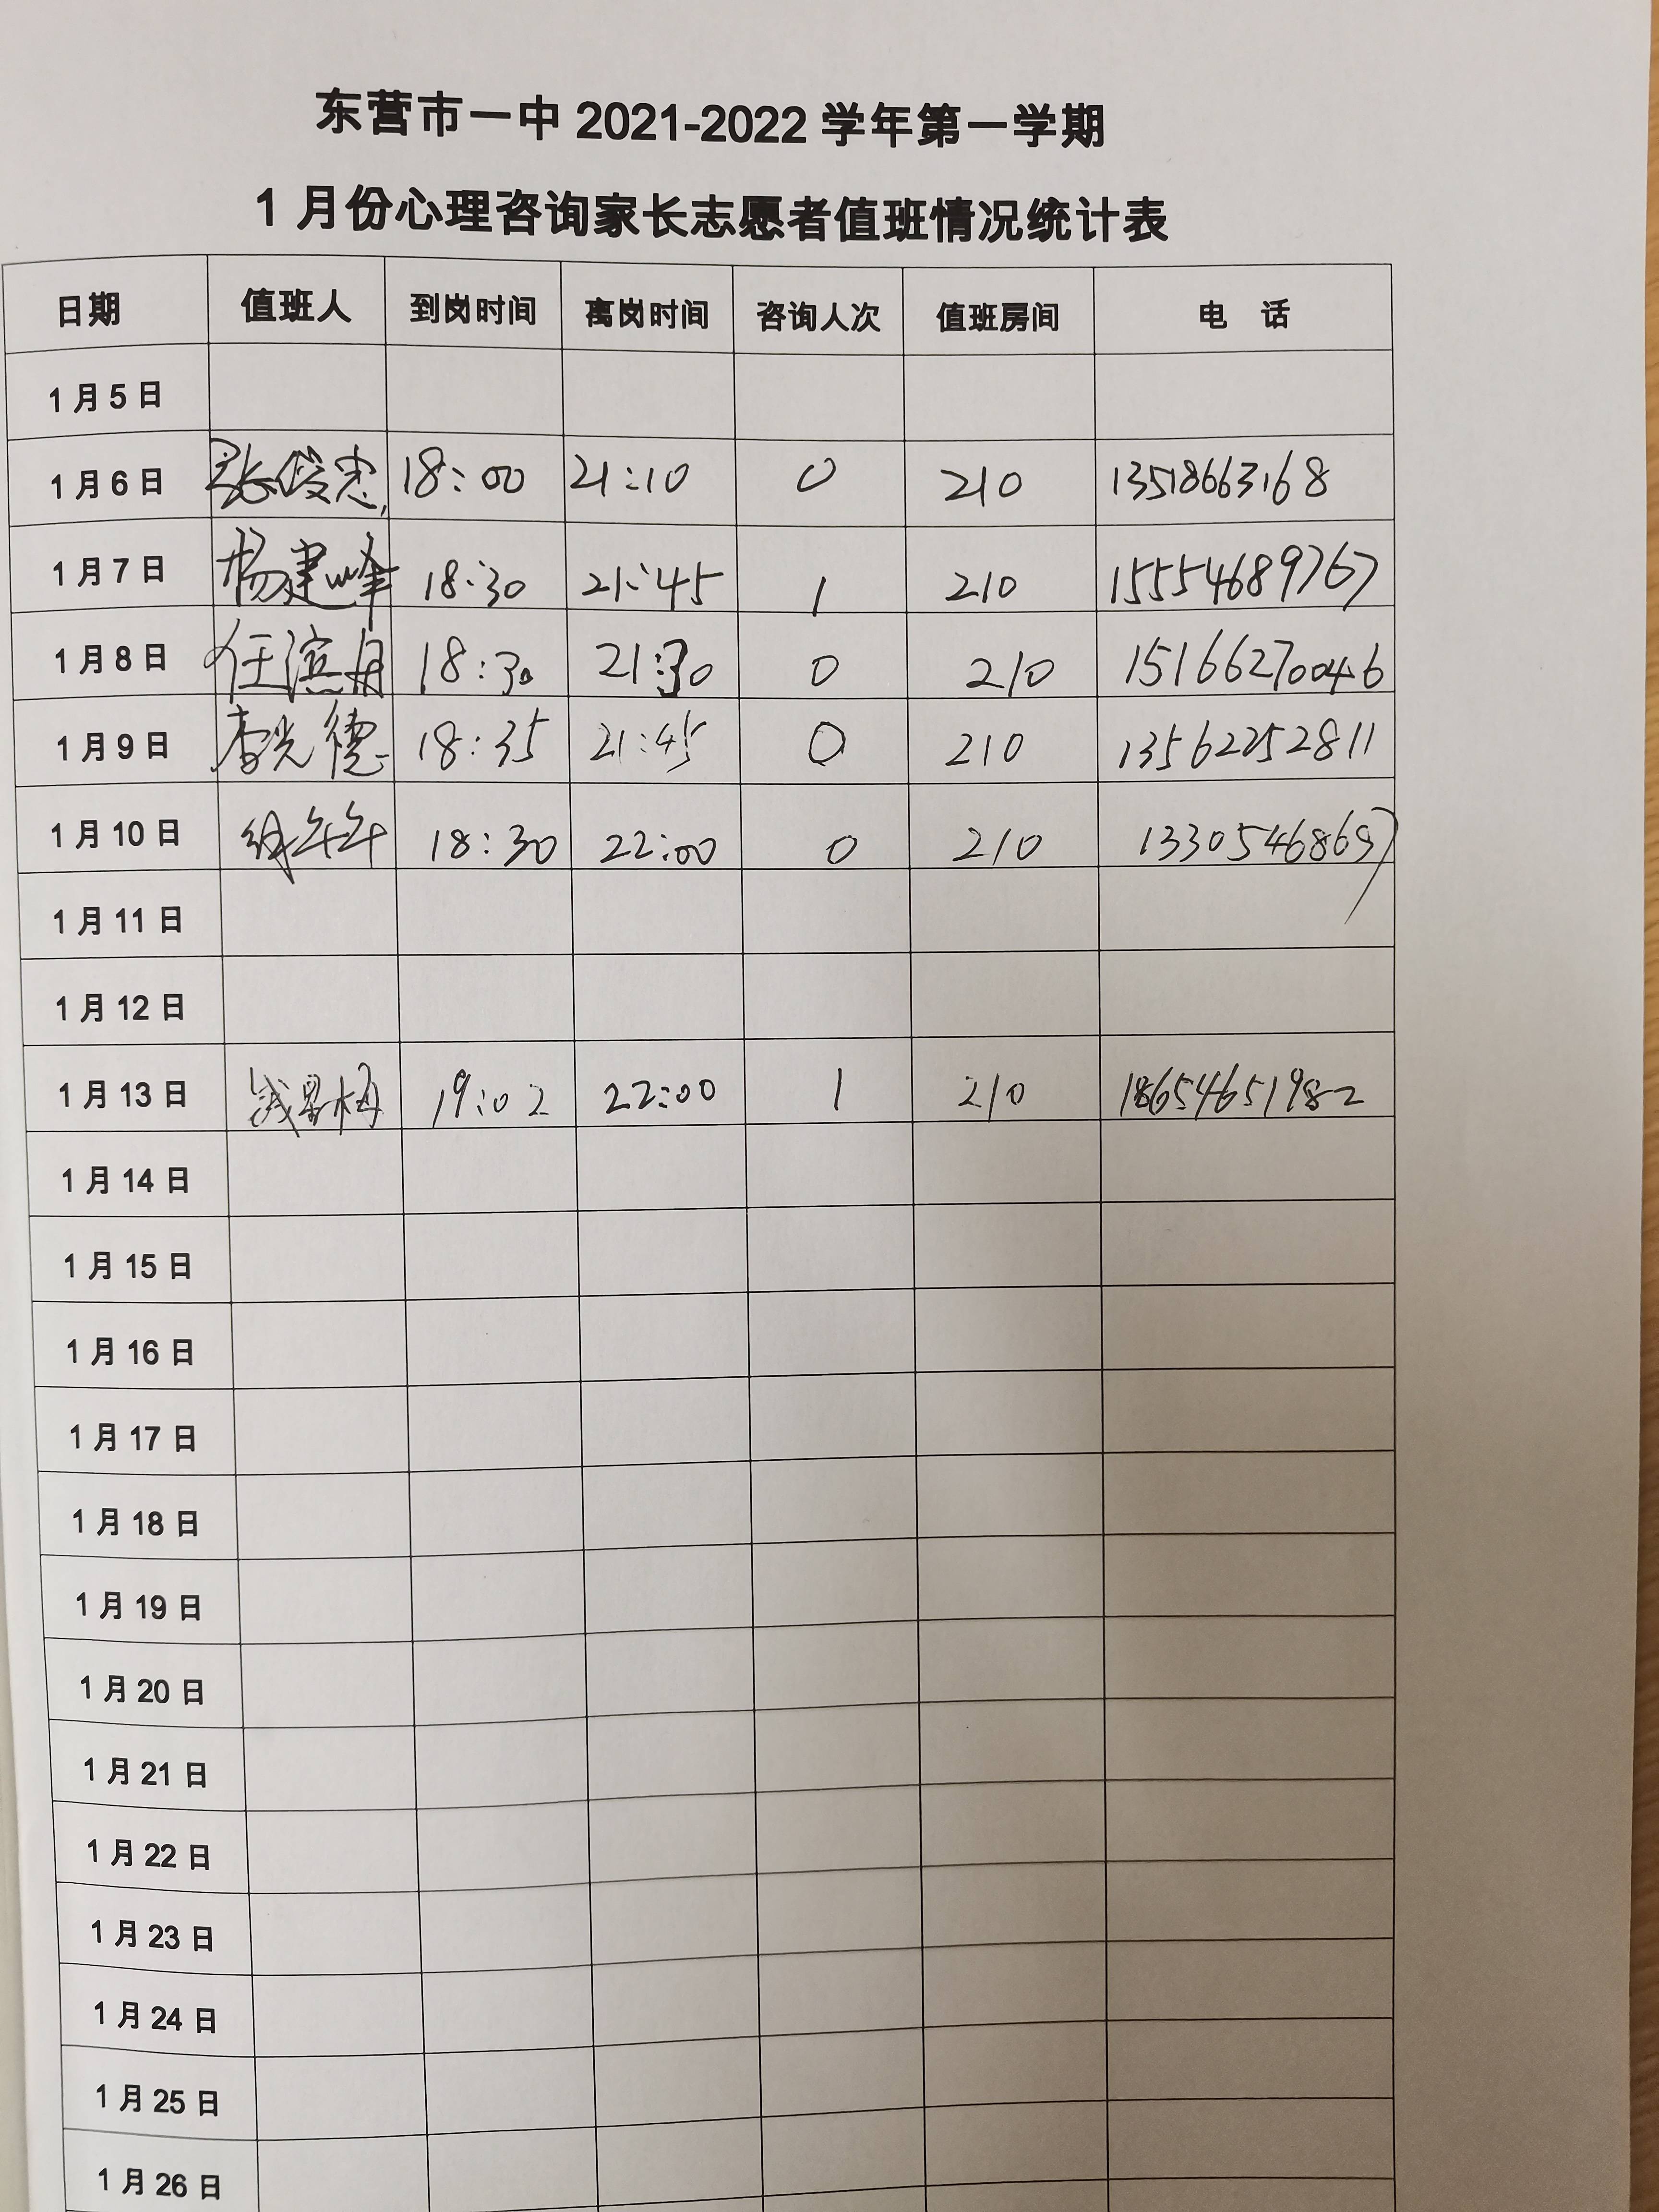 东营市一中 2021-2022 学年第一学期
1 月份心理咨询家长志愿者值班情况统计表
日期 值班人 到岗时间 离岗时间 咨询人次 值班房间 电 话
1 月 5 日
1 月 6 日 张俊忠 18:00 21:10 0 210 13518663168
1 月 7 日 杨建峰 18:30 21:45 1 210 15554689767
1 月 8 日 任滨月 18:30 21:30 0 210 15166270046
1 月 9 日 李光德 18:35 21:45 0 210 13562252811
1 月 10 日 18:30 22:00 0 210 13305468697
1 月 11 日
1 月 12 日
1 月 13 日 19:02 22:00 1 210 18654651982
1 月 14 日
1 月 15 日
1 月 16 日
1 月 17 日
1 月 18 日
1 月 19 日
1 月 20 日
1 月 21 日
1 月 22 日
1 月 23 日
1 月 24 日
1 月 25 日
1 月 26 日